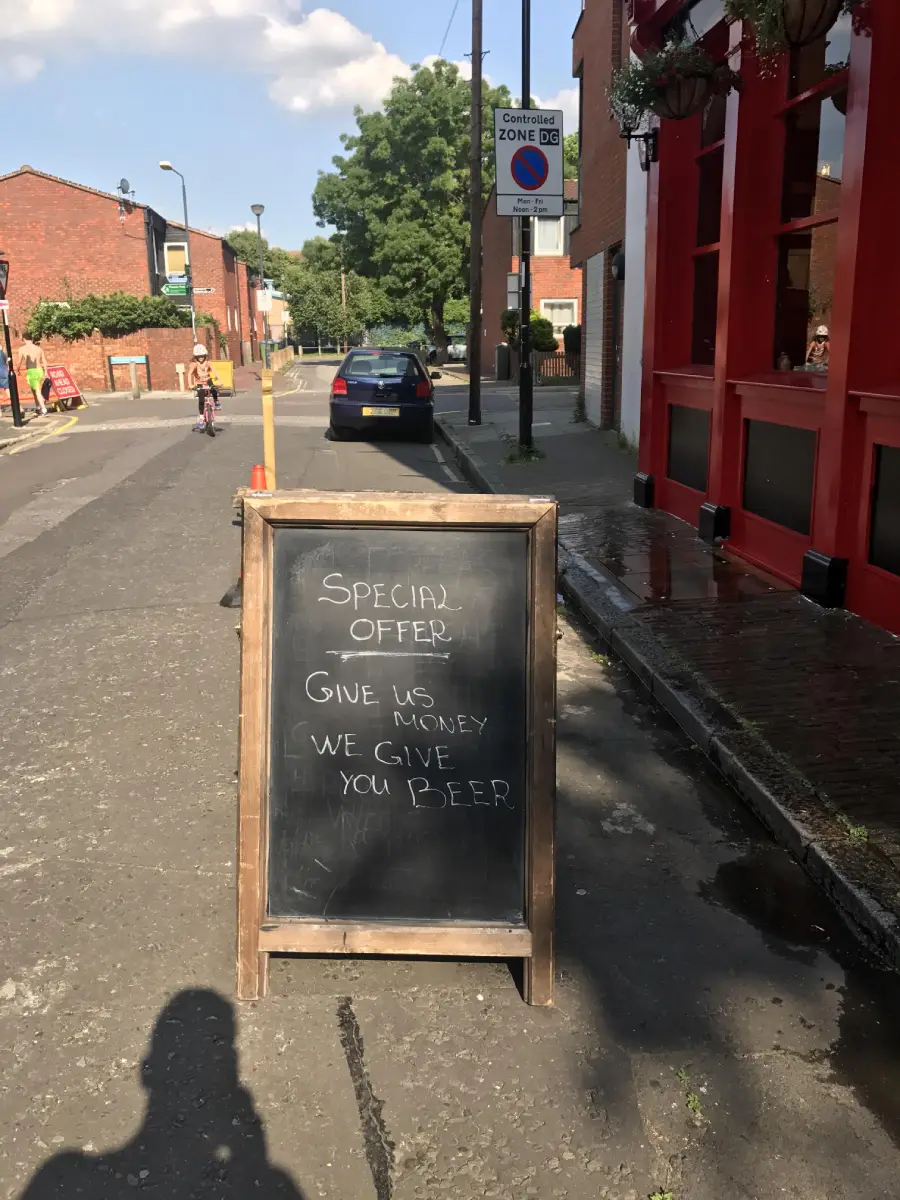 Controlled
ZONE DG
Mon - Fri
Noon - 2 pm
ROAD
AHEAD
CLOSED
SPECIAL
OFFER
GIVE US
MONEY
WE GIVE
YOU BEER